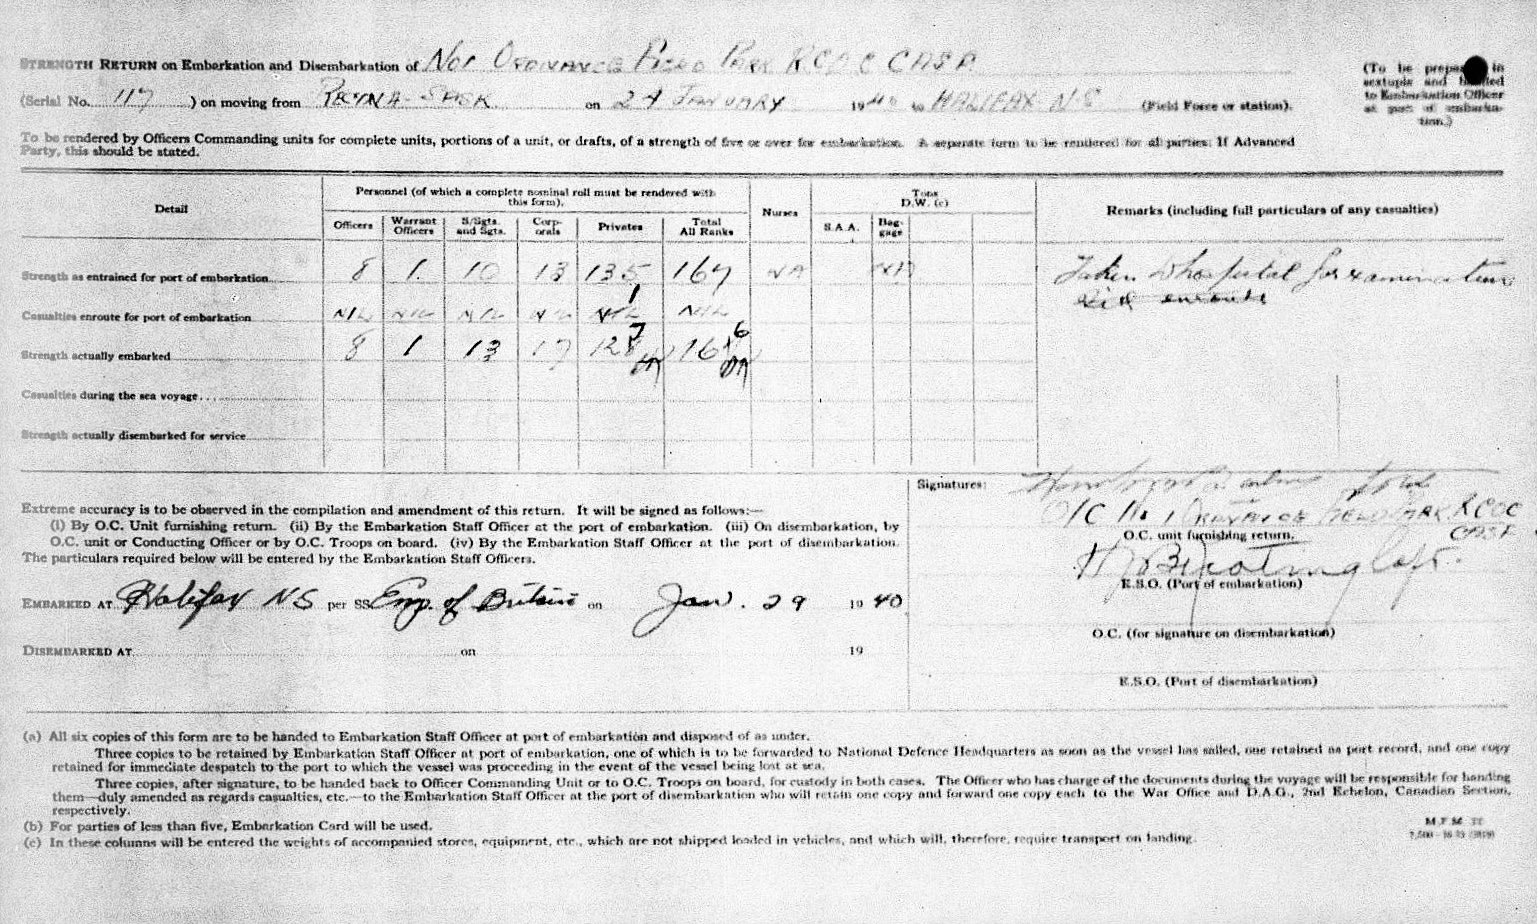 STRENGTH RETURN on Embarkation and Disembarkation of No1 ORDNANCE FIELD PARK RCOC CASF
(To be prepared in
sextuple and handed
to Embarkation Officer
at port of embarka-
tion.)
(Serial No. 117 ) on moving from REGINA SASK on 24 JANUARY 1940 to HALIFAX N-S (Field Force or station).
To be rendered by Officers Commanding units for complete units, portions of a unit, or drafts, of a strength of five or over for embarkation. A separate form to be rendered for all parties: If Advanced
Party, this should be stated.
Detail
Personnel (of which a complete nominal roll must be rendered with
this form).
Officers Warrant Officers S/Sgts. and Sgts. Corp- orals Privates Total All Ranks
Nurses
Tons
D.W. (c)
S.A.A. Bag- gage
Remarks (including full particulars of any casualties)
Strength as entrained for port of embarkation 8 1 10 13 135 167 NA
Taken to hospital for examination
enroute
1
Casualties enroute for port of embarkation NIL NIL NIL NIL NIL NIL
7 6
Strength actually embarked 8 1 13 17 128 16
Casualties during the sea voyage
Strength actually disembarked for service
Extreme accuracy is to be observed in the compilation and amendment of this return. It will be signed as follows:—
(i) By O.C. Unit furnishing return. (ii) By the Embarkation Staff Officer at the port of embarkation. (iii) On disembarkation, by
O.C. unit or Conducting Officer or by O.C. Troops on board. (iv) By the Embarkation Staff Officer at the port of disembarkation.
The particulars required below will be entered by the Embarkation Staff Officers.
EMBARKED AT Halifax NS per SS Emp. of Britain on Jan. 29 1940
DISEMBARKED AT on 19
Signatures:
O/C No 1 ORDNANCE FIELD PARK RCOC
CASF
O.C. unit furnishing return.
Capt.
E.S.O. (Port of embarkation)
O.C. (for signature on disembarkation)
E.S.O. (Port of disembarkation)
(a) All six copies of this form are to be handed to Embarkation Staff Officer at port of embarkation and disposed of as under.
Three copies to be retained by Embarkation Staff Officer at port of embarkation, one of which is to be forwarded to National Defence Headquarters as soon as the vessel has sailed, one retained as port record, and one copy
retained for immediate despatch to the port to which the vessel was proceeding in the event of the vessel being lost at sea.
Three copies, after signature, to be handed back to Officer Commanding Unit or to O.C. Troops on board, for custody in both cases. The Officer who has charge of the documents during the voyage will be responsible for handing
them—duly amended as regards casualties, etc.—to the Embarkation Staff Officer at the port of disembarkation who will retain one copy and forward one copy each to the War Office and D.A.G., 2nd Echelon, Canadian Section,
respectively.
(b) For parties of less than five, Embarkation Card will be used.
(c) In these columns will be entered the weights of accompanied stores, equipment, etc., which are not shipped loaded in vehicles, and which will, therefore, require transport on landing.
M.F.M.